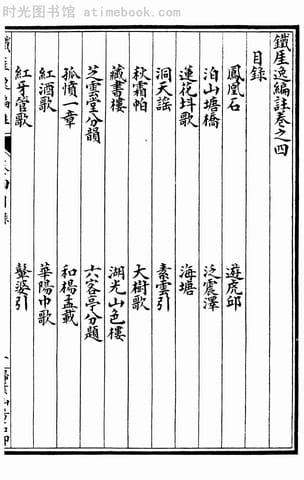 时光图书馆 - atimebook.com
鐵厓逸編註卷之四
目錄
鳳凰石　遊虎邱
泊山塘橋　泛震澤
蓮花坶歌　海塘
洞天謠　素雲引
秋霜帕　大樹歌
藏書樓　湖光山色樓
芝雲堂分韻　六客亭分題
孤憤一章　和楊孟載
紅酒歌　華陽巾歌
紅牙管歌　鼙婆引